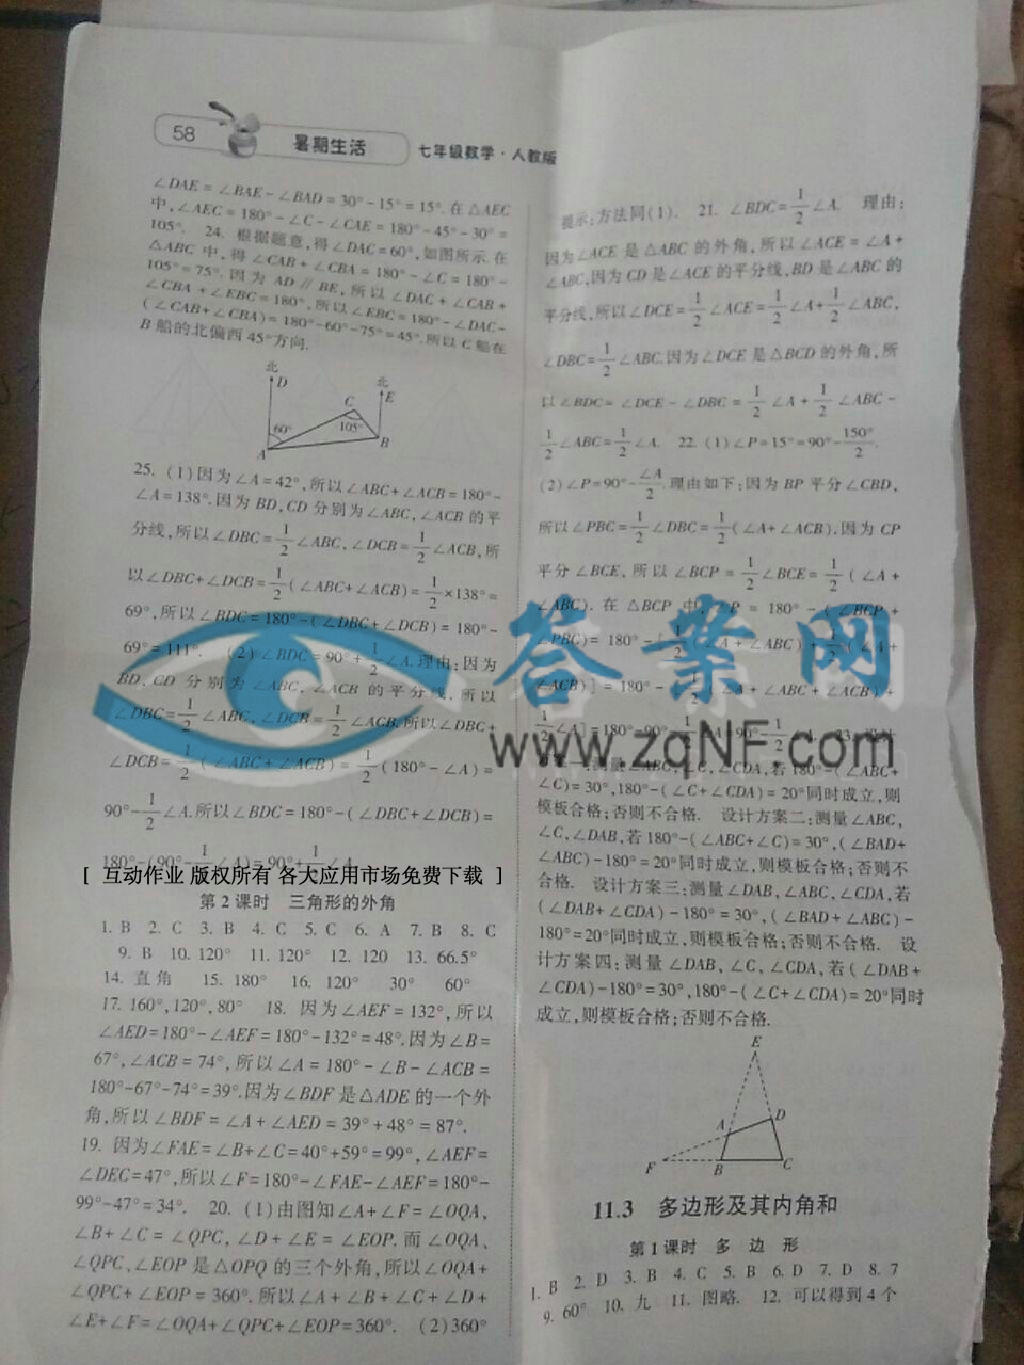 58 暑期生活 七年级数学·人教版
∠DAE=∠BAE-∠BAD=30°-15°=15°.在△AEC
中,∠AEC=180°-∠C-∠CAE=180°-45°-30°=
105°. 24. 根据题意,得∠DAC=60°,如图所示.在
△ABC 中,得∠CAB+∠CBA=180°-∠C=180°-
105°=75°.因为 AD∥BE,所以∠DAC+∠CAB+
∠CBA+∠EBC=180°,所以∠EBC=180°-∠DAC-
(∠CAB+∠CBA)=180°-60°-75°=45°.所以 C 船在
B 船的北偏西 45°方向.
北 D
北 E
C
60° 105°
A B
25. (1)因为∠A=42°,所以∠ABC+∠ACB=180°-
∠A=138°.因为 BD,CD 分别为∠ABC,∠ACB 的平
分线,所以∠DBC=1/2∠ABC,∠DCB=1/2∠ACB,所
以∠DBC+∠DCB=1/2(∠ABC+∠ACB)=1/2×138°=
69°,所以∠BDC=180°-(∠DBC+∠DCB)=180°-
69°=111°. (2)∠BDC=90°+1/2∠A.理由:因为
BD,CD 分别为∠ABC,∠ACB 的平分线,所以
∠DBC=1/2∠ABC,∠DCB=1/2∠ACB.所以∠DBC+
∠DCB=1/2(∠ABC+∠ACB)=1/2(180°-∠A)=
90°-1/2∠A.所以∠BDC=180°-(∠DBC+∠DCB)=
180°-(90°-1/2∠A)=90°+1/2∠A.
[ 互动作业 版权所有 各大应用市场免费下载 ]
第 2 课时 三角形的外角
1. B 2. C 3. B 4. C 5. C 6. A 7. B 8. C
9. B 10. 120° 11. 120° 12. 120 13. 66.5°
14. 直角 15. 180° 16. 120° 30° 60°
17. 160°,120°,80° 18. 因为∠AEF=132°,所以
∠AED=180°-∠AEF=180°-132°=48°.因为∠B=
67°,∠ACB=74°,所以∠A=180°-∠B-∠ACB=
180°-67°-74°=39°.因为∠BDF 是△ADE 的一个外
角,所以∠BDF=∠A+∠AED=39°+48°=87°.
19. 因为∠FAE=∠B+∠C=40°+59°=99°,∠AEF=
∠DEC=47°,所以∠F=180°-∠FAE-∠AEF=180°-
99°-47°=34°. 20. (1)由图知∠A+∠F=∠OQA,
∠B+∠C=∠QPC,∠D+∠E=∠EOP.而∠OQA、
∠QPC、∠EOP 是△OPQ 的三个外角,所以∠OQA+
∠QPC+∠EOP=360°.所以∠A+∠B+∠C+∠D+
∠E+∠F=∠OQA+∠QPC+∠EOP=360°. (2)360°
提示:方法同(1). 21. ∠BDC=1/2∠A. 理由:
因为∠ACE 是△ABC 的外角,所以∠ACE=∠A+
∠ABC,因为 CD 是∠ACE 的平分线,BD 是∠ABC 的
平分线,所以∠DCE=1/2∠ACE=1/2∠A+1/2∠ABC,
∠DBC=1/2∠ABC.因为∠DCE 是△BCD 的外角,所
以∠BDC=∠DCE-∠DBC=1/2∠A+1/2∠ABC-
1/2∠ABC=1/2∠A. 22. (1)∠P=15°=90°-150°/2.
(2)∠P=90°-∠A/2.理由如下:因为 BP 平分∠CBD,
所以∠PBC=1/2∠DBC=1/2(∠A+∠ACB).因为 CP
平分∠BCE,所以∠BCP=1/2∠BCE=1/2(∠A+
∠ABC).在△BCP 中,∠P=180°-(∠BCP+
∠PBC)=180°-[1/2(∠A+∠ABC)+1/2(∠A+
∠ACB)]=180°-[1/2(∠A+∠ABC+∠ACB)+
1/2∠A]=180°-90°-1/2∠A=90°-1/2∠A. 23. 设计
:测量∠ABC,∠C,∠CDA,若 180°-(∠ABC+
∠C)=30°,180°-(∠C+∠CDA)=20°同时成立,则
模板合格;否则不合格. 设计方案二:测量∠ABC,
∠C,∠DAB,若 180°-(∠ABC+∠C)=30°,(∠BAD+
∠ABC)-180°=20°同时成立,则模板合格;否则不
合格. 设计方案三:测量∠DAB,∠ABC,∠CDA,若
(∠DAB+∠CDA)-180°=30°,(∠BAD+∠ABC)-
180°=20°同时成立,则模板合格;否则不合格. 设
计方案四:测量∠DAB,∠C,∠CDA,若(∠DAB+
∠CDA)-180°=30°,180°-(∠C+∠CDA)=20°同时
成立,则模板合格;否则不合格.
E
A D
F B C
11.3 多边形及其内角和
第 1 课时 多 边 形
1. B 2. D 3. B 4. C 5. B 6. D 7. D 8. 7
9. 60° 10. 九 11. 图略. 12. 可以得到 4 个
答案网
www.zqNF.com